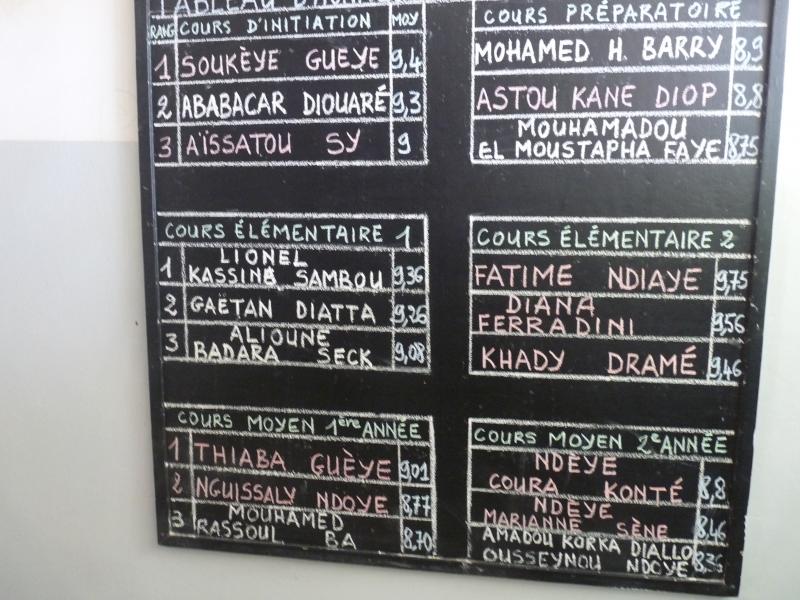 TABLEAU D'HONNEUR
RANG COURS D'INITIATION MOY
1 SOUKÈYE GUEYE 9,4
2 ABABACAR DIOUARÉ 9,3
3 AÏSSATOU SY 9
COURS PRÉPARATOIRE
MOHAMED H. BARRY 8,9
ASTOU KANE DIOP 8,8
MOUHAMADOU
EL MOUSTAPHA FAYE 8,75
COURS ÉLÉMENTAIRE 1
LIONEL
1 KASSINE SAMBOU 9,36
2 GAËTAN DIATTA 9,26
ALIOUNE
3 BADARA SECK 9,08
COURS ÉLÉMENTAIRE 2
FATIME NDIAYE 9,75
DIANA
FERRADINI 9,56
KHADY DRAMÉ 9,46
COURS MOYEN 1ère ANNÉE
1 THIABA GUÈYE 9,01
2 NGUISSALY NDOYE 8,77
MOUHAMED
3 RASSOUL BA 8,70
COURS MOYEN 2e ANNÉE
NDÈYE
COURA KONTÉ 8,8
NDÈYE
MARIANNE SÈNE 8,46
AMADOU KORKA DIALLO
OUSSEYNOU NDOYE 8,36